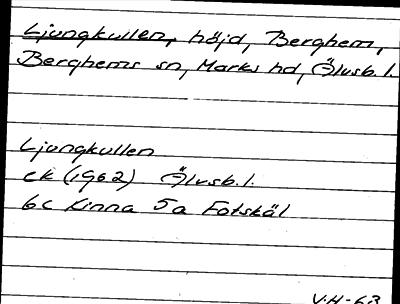 Ljungkullen, höjd, Berghem,
Berghems sn, Marks hd, Älvsb. l.
Ljungkullen
ek (1962) Älvsb. l.
6c Kinna 5a Fotskäl
V.H-63